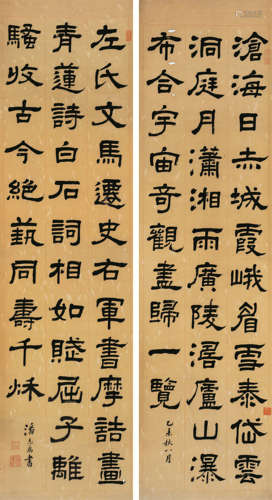 滄海日赤城霞峨眉雪泰岱雲
洞庭月瀟湘雨廣陵濤廬山瀑
布合宇宙奇觀盡歸一覽
秋八月
左氏文馬遷史右軍書摩詰畫
青蓮詩白石詞相如賦屈子離
騷收古今絕藝同壽千秋
潘 書